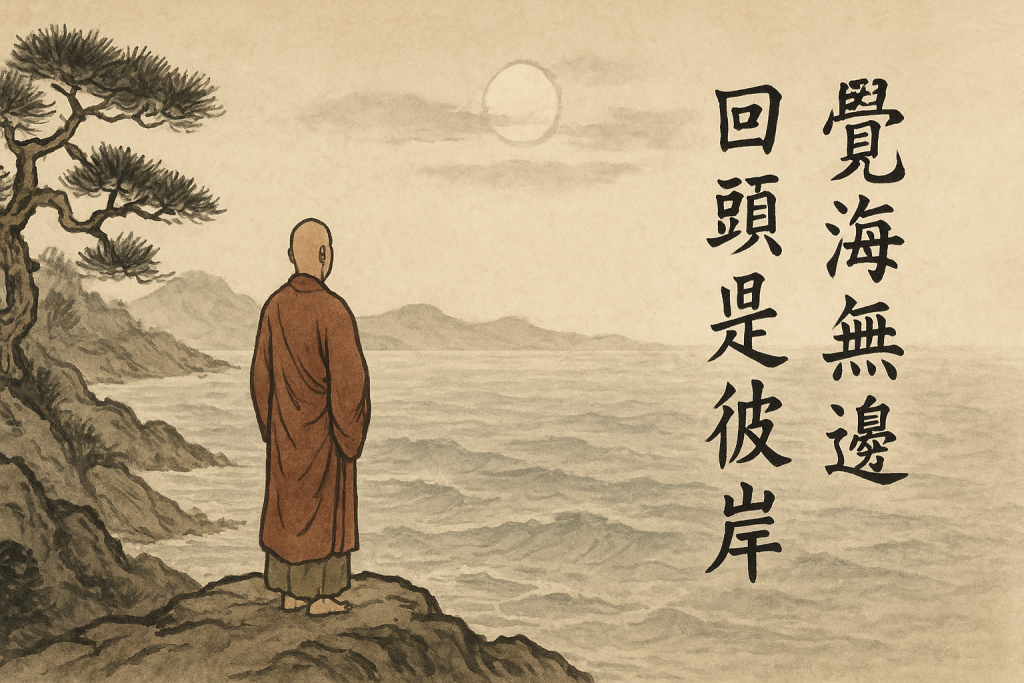 覺海無邊
回頭是彼岸